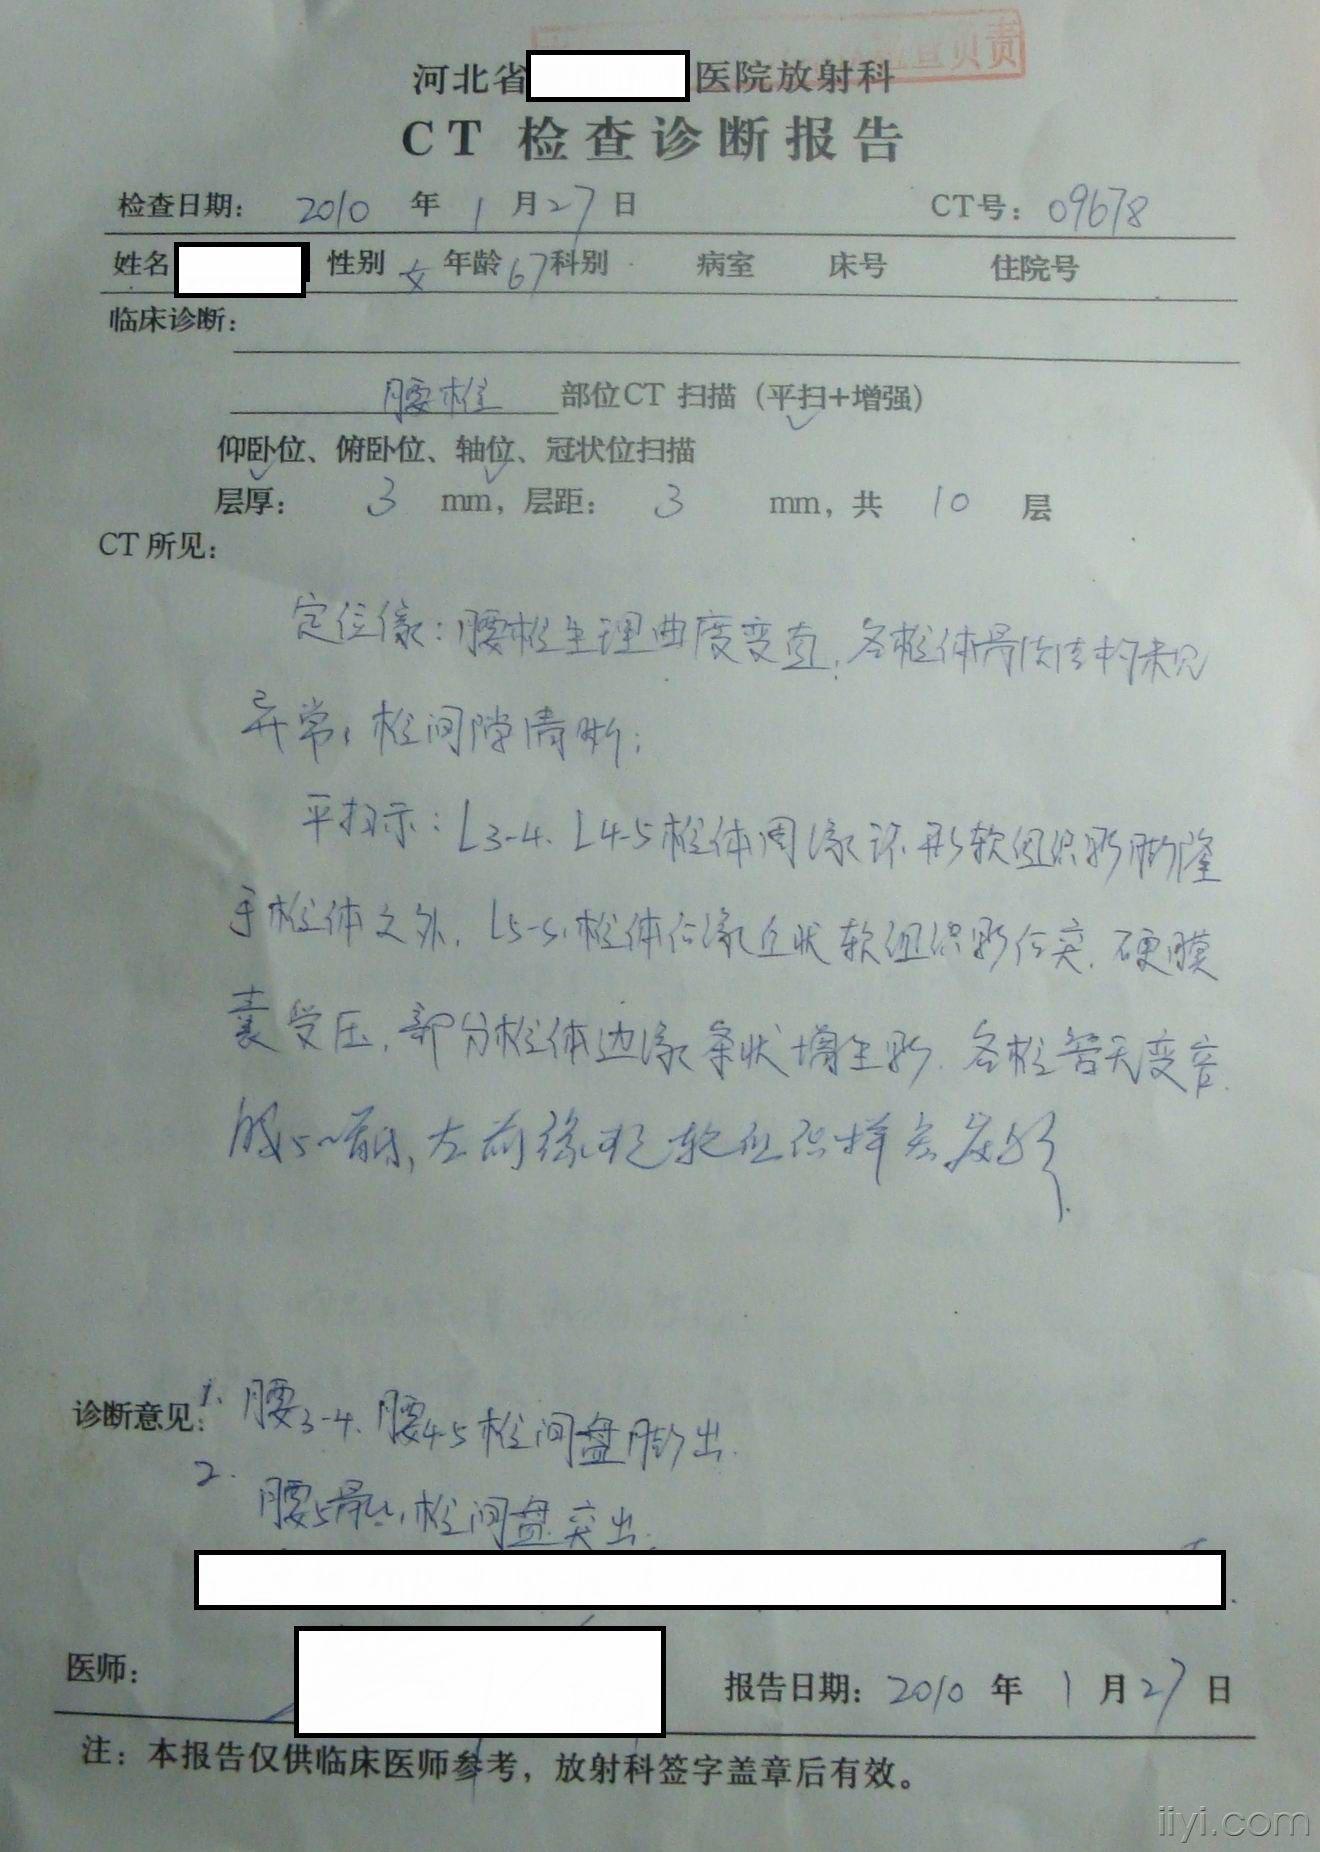 查负责
河北省 医院放射科
CT 检查诊断报告
检查日期: 2010 年 1 月 27 日 CT号: 09678
姓名 性别 女 年龄 67 科别 病室 床号 住院号
临床诊断:
腰椎 部位CT 扫描 (平扫+增强)
仰卧位、俯卧位、轴位、冠状位扫描
层厚: 3 mm, 层距: 3 mm, 共 10 层
CT 所见:
定位像: 腰椎生理曲度变直, 各椎体骨质结构未见
异常, 椎间隙清晰;
平扫示: L3-4、L4-5椎体周缘环形软组织影膨隆
于椎体之外, L5-S1椎体后缘丘状软组织影后突, 硬膜
囊受压, 部分椎体边缘条状增生影, 各椎管无变窄.
腰5 左前缘 软组织样密度影
诊断意见: 1. 腰3-4、腰4-5椎间盘膨出.
2. 腰5骶1椎间盘突出.
医师: 报告日期: 2010 年 1 月 27 日
注: 本报告仅供临床医师参考, 放射科签字盖章后有效。
iiyi.com